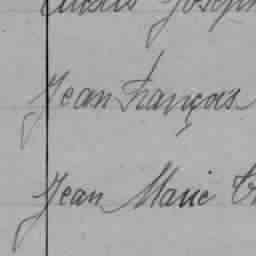 Joseph
Jean François
Jean Marie